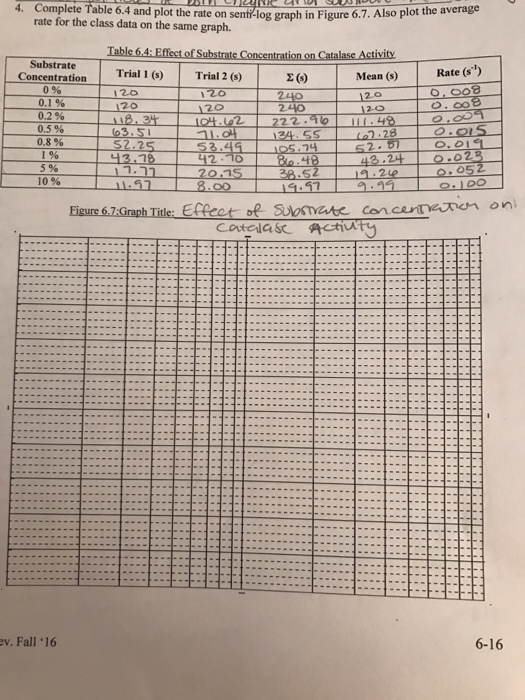 4. Complete Table 6.4 and plot the rate on semi-log graph in Figure 6.7. Also plot the average
rate for the class data on the same graph.
Table 6.4: Effect of Substrate Concentration on Catalase Activity
Substrate Concentration Trial 1 (s) Trial 2 (s) Σ (s) Mean (s) Rate (s⁻¹)
0 % 120 120 240 120 0.008
0.1 % 120 120 240 120 0.008
0.2 % 118.34 104.62 222.96 111.48 0.009
0.5 % 63.51 71.04 134.55 67.28 0.015
0.8 % 52.25 53.49 105.74 52.87 0.019
1 % 43.78 42.70 86.48 43.24 0.023
5 % 17.77 20.75 38.52 19.26 0.052
10 % 11.97 8.00 19.97 9.99 0.100
Figure 6.7:Graph Title: Effect of Substrate concentration on
Catalase Activity
ev. Fall '16
6-16